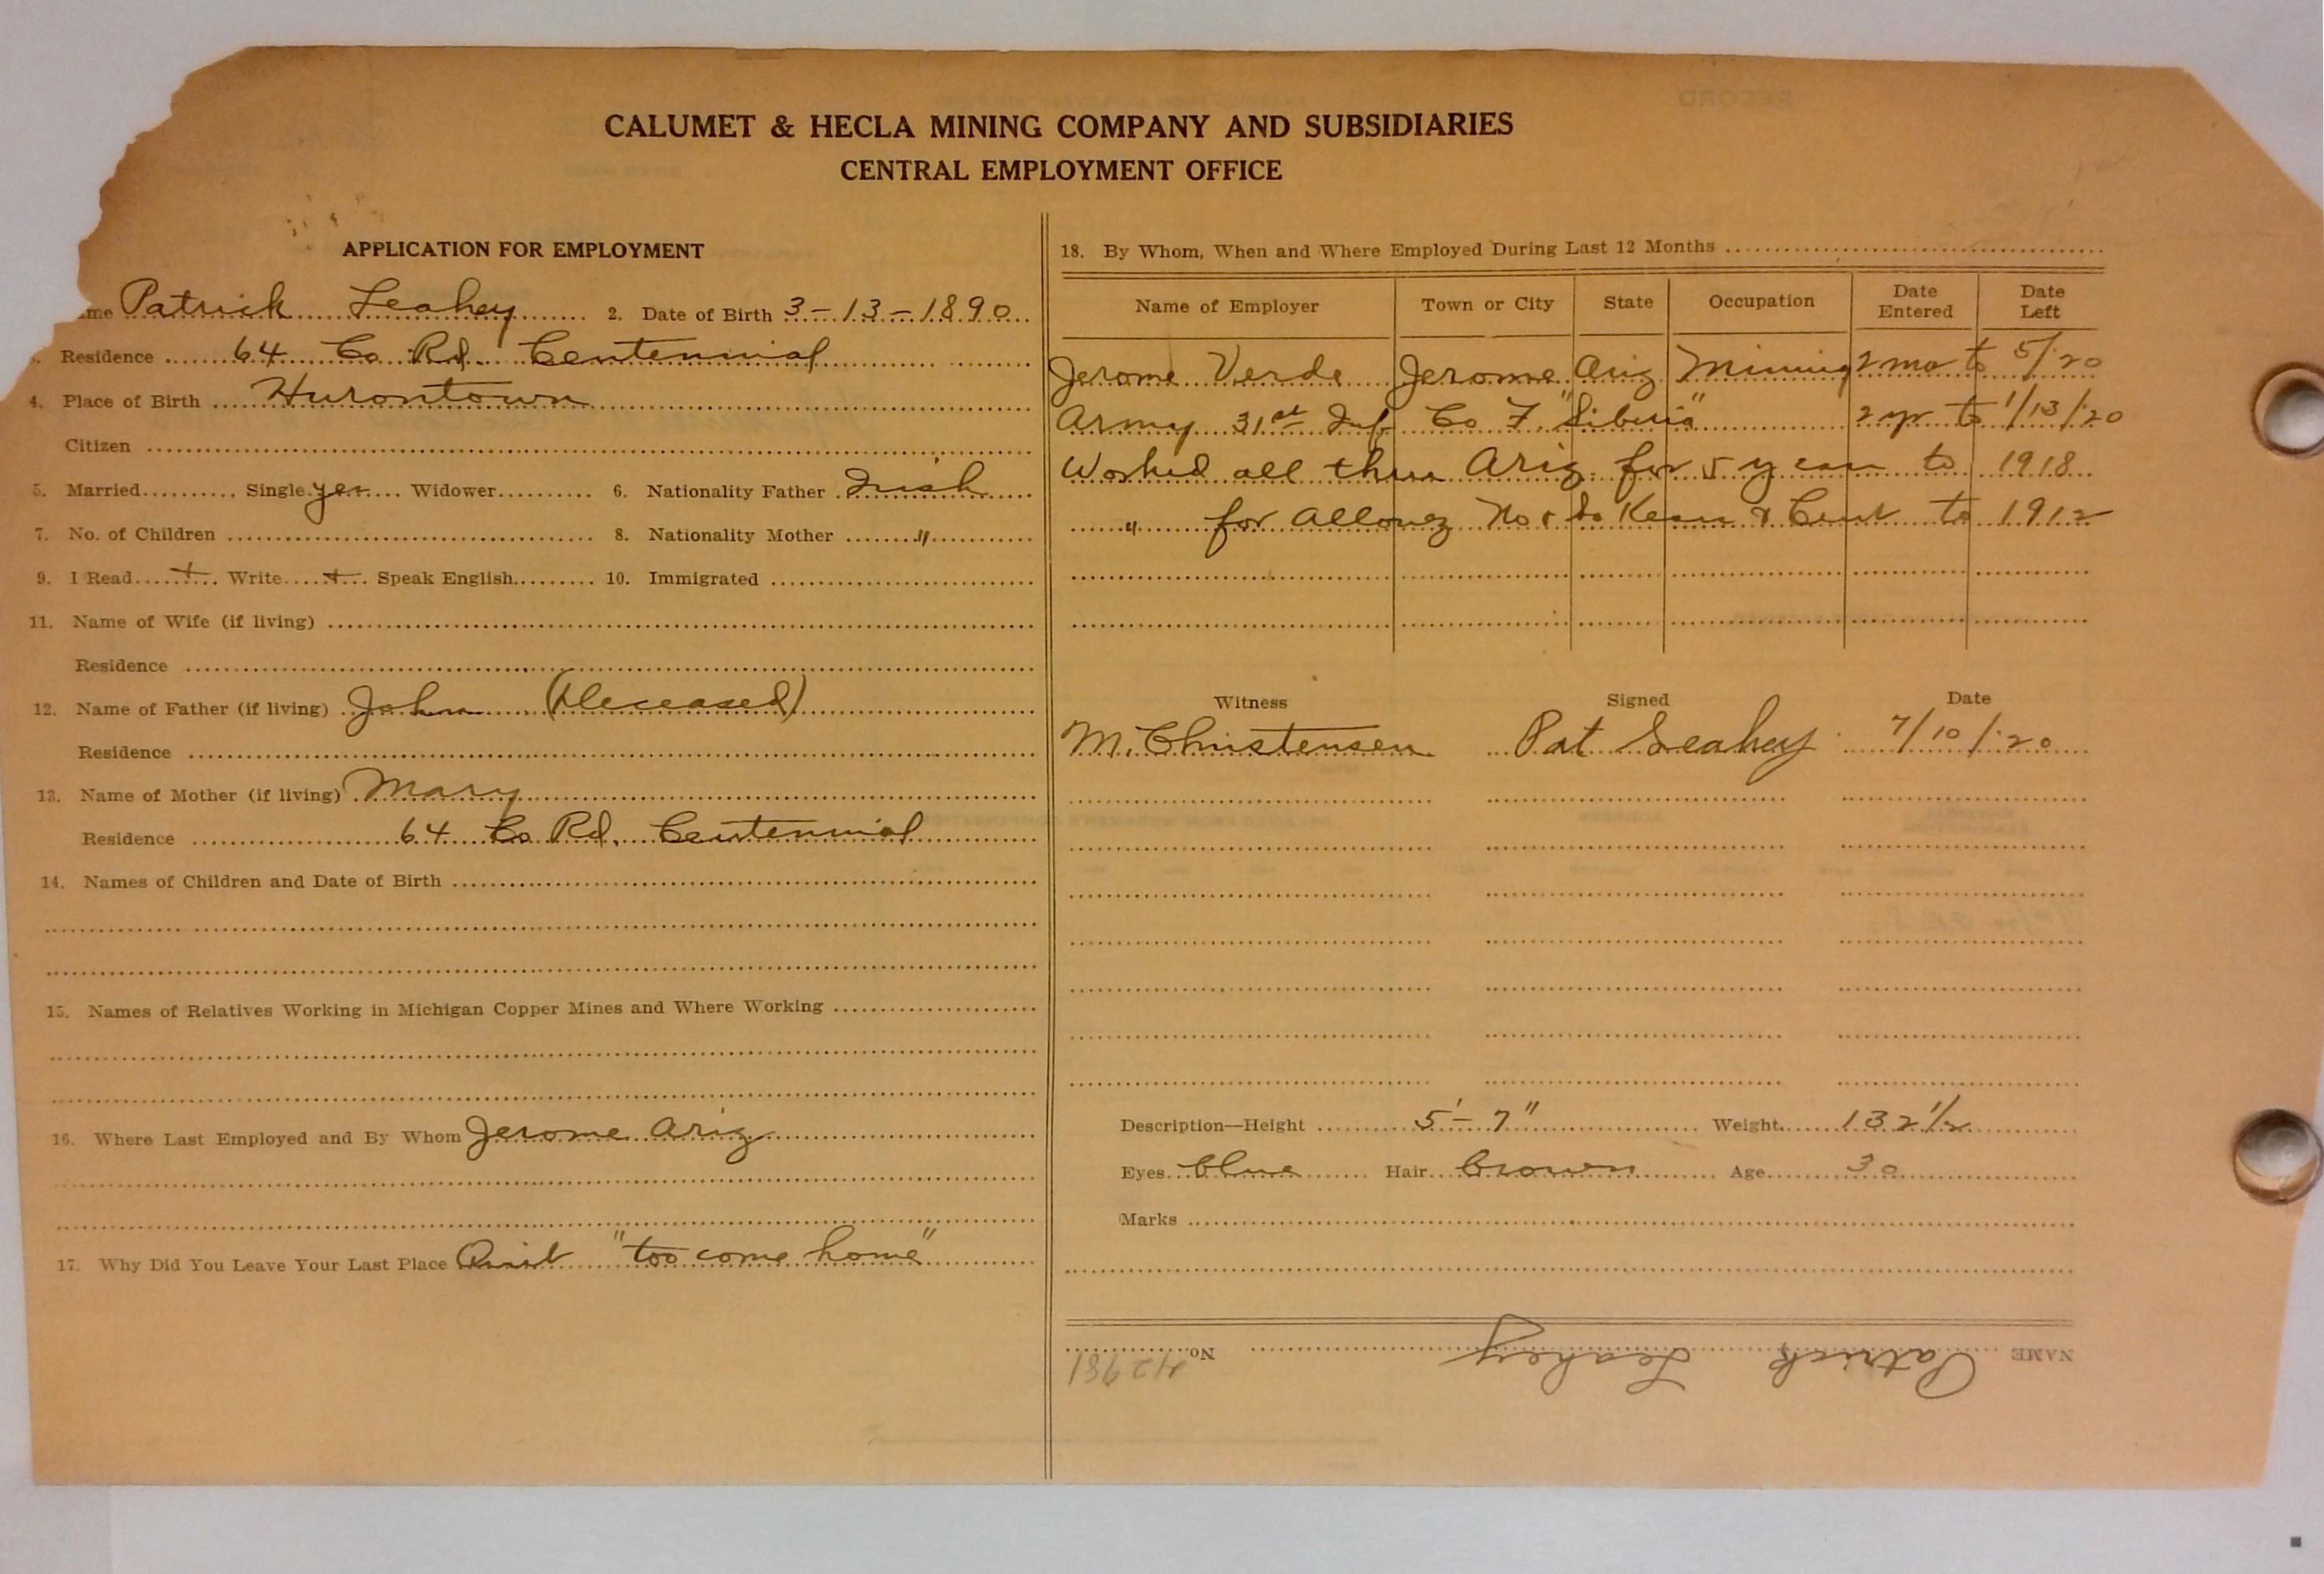 CALUMET & HECLA MINING COMPANY AND SUBSIDIARIES
CENTRAL EMPLOYMENT OFFICE
APPLICATION FOR EMPLOYMENT
me Patrick Leahey 2. Date of Birth 3-13-1890
Residence 64 Co Rd. Centennial
4. Place of Birth Hurontown
Citizen
5. Married Single yes Widower 6. Nationality Father Irish
7. No. of Children 8. Nationality Mother "
9. I Read + Write + Speak English 10. Immigrated
11. Name of Wife (if living)
Residence
12. Name of Father (if living) John (Deceased)
Residence
13. Name of Mother (if living) Mary
Residence 64 Co Rd. Centennial
14. Names of Children and Date of Birth
15. Names of Relatives Working in Michigan Copper Mines and Where Working
16. Where Last Employed and By Whom Jerome Ariz
17. Why Did You Leave Your Last Place Quit "too come home"
18. By Whom, When and Where Employed During Last 12 Months
Name of Employer Town or City State Occupation Date Entered Date Left
Jerome Verde Jerome Ariz Mining 2 mo to 5/'20
Army 31st Inf. Co F. "Siberia" 2 yr to 1/13/'20
Worked all thru Ariz. for 5 years to 1918
" for Allouez No & So Kear & Cent to 1912
Witness Signed Date
M. Christensen Pat Leahey 7/10/'20
Description—Height 5'-7" Weight 132 1/2
Eyes blue Hair brown Age 30
Marks
NAME Patrick Leahey No. 42981
RECORD